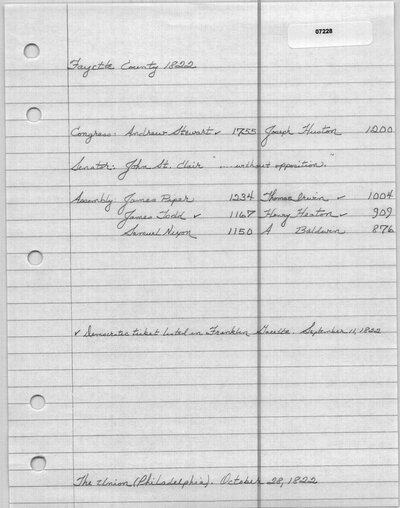 07228
Fayette County 1822
Congress: Andrew Stewart ✓ 1755 Joseph Huston 1200
Senator: John St. Clair "... without opposition."
Assembly: James Piper 1234 Thomas Irwin ✓ 1004
James Todd ✓ 1167 Henry Heaton ✓ 909
Samuel Nixon 1150 A Baldwin 876
✓ Democratic ticket listed in Franklin Gazette. September 11, 1822
The Union (Philadelphia). October 28, 1822